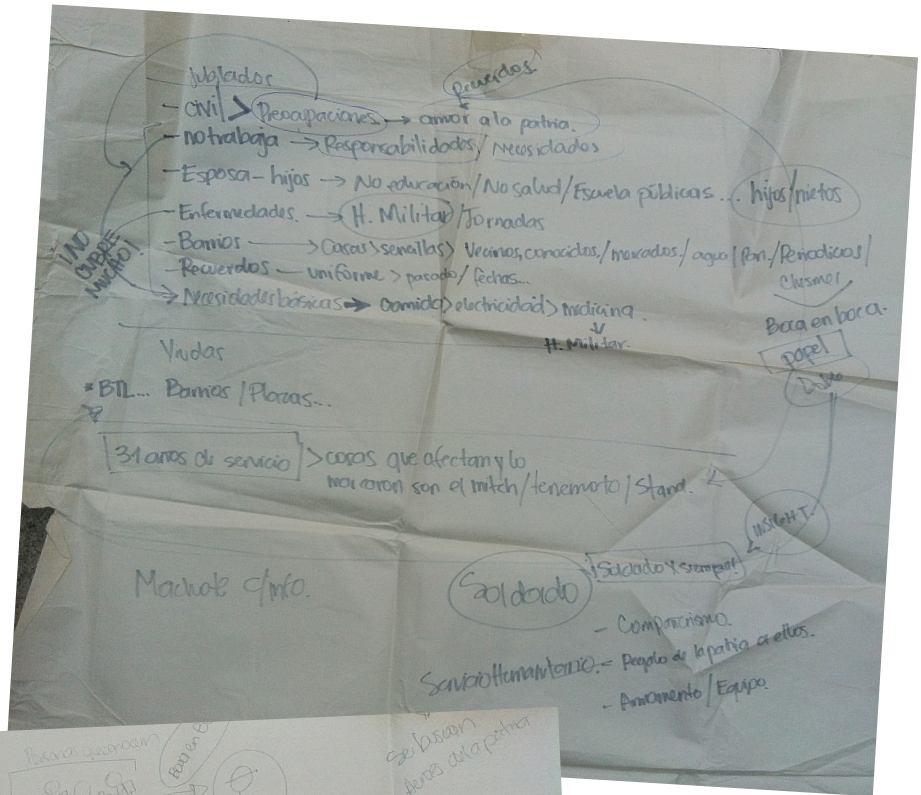 Jubilados
Recuerdos
- civil > Preocupaciones → amor a la patria.
- no trabaja → Responsabilidades / Necesidades
- Esposa - hijos → No educación / No salud / Escuela públicas... hijos/nietos
- Enfermedades. → H. Militar / Jornadas
- Barrios → Casas > sencillas > Vecinos, conocidos, / mercados / agua / Pan / Periodicos /
Chismes
- Recuerdos - uniforme > pasado / fechas...
¡NO CUBRE MUCHO!
→ Necesidades básicas → comida > electricidad > medicina.
H. Militar.
Boca en boca.
papel
Viudas
* BTL... Barrios / Plazas...
31 anos de servicio > cosas que afectan y lo
marcaron son el mitch / terremoto / Stand.
INSIGHT
Machote c/info.
Soldado
¡Soldado X siempre!
- Compañerismo.
Servicio Humanitario. - Regalo de la patria a ellos.
- Armamento / Equipo.
Se buscan
de la patria
Boca en